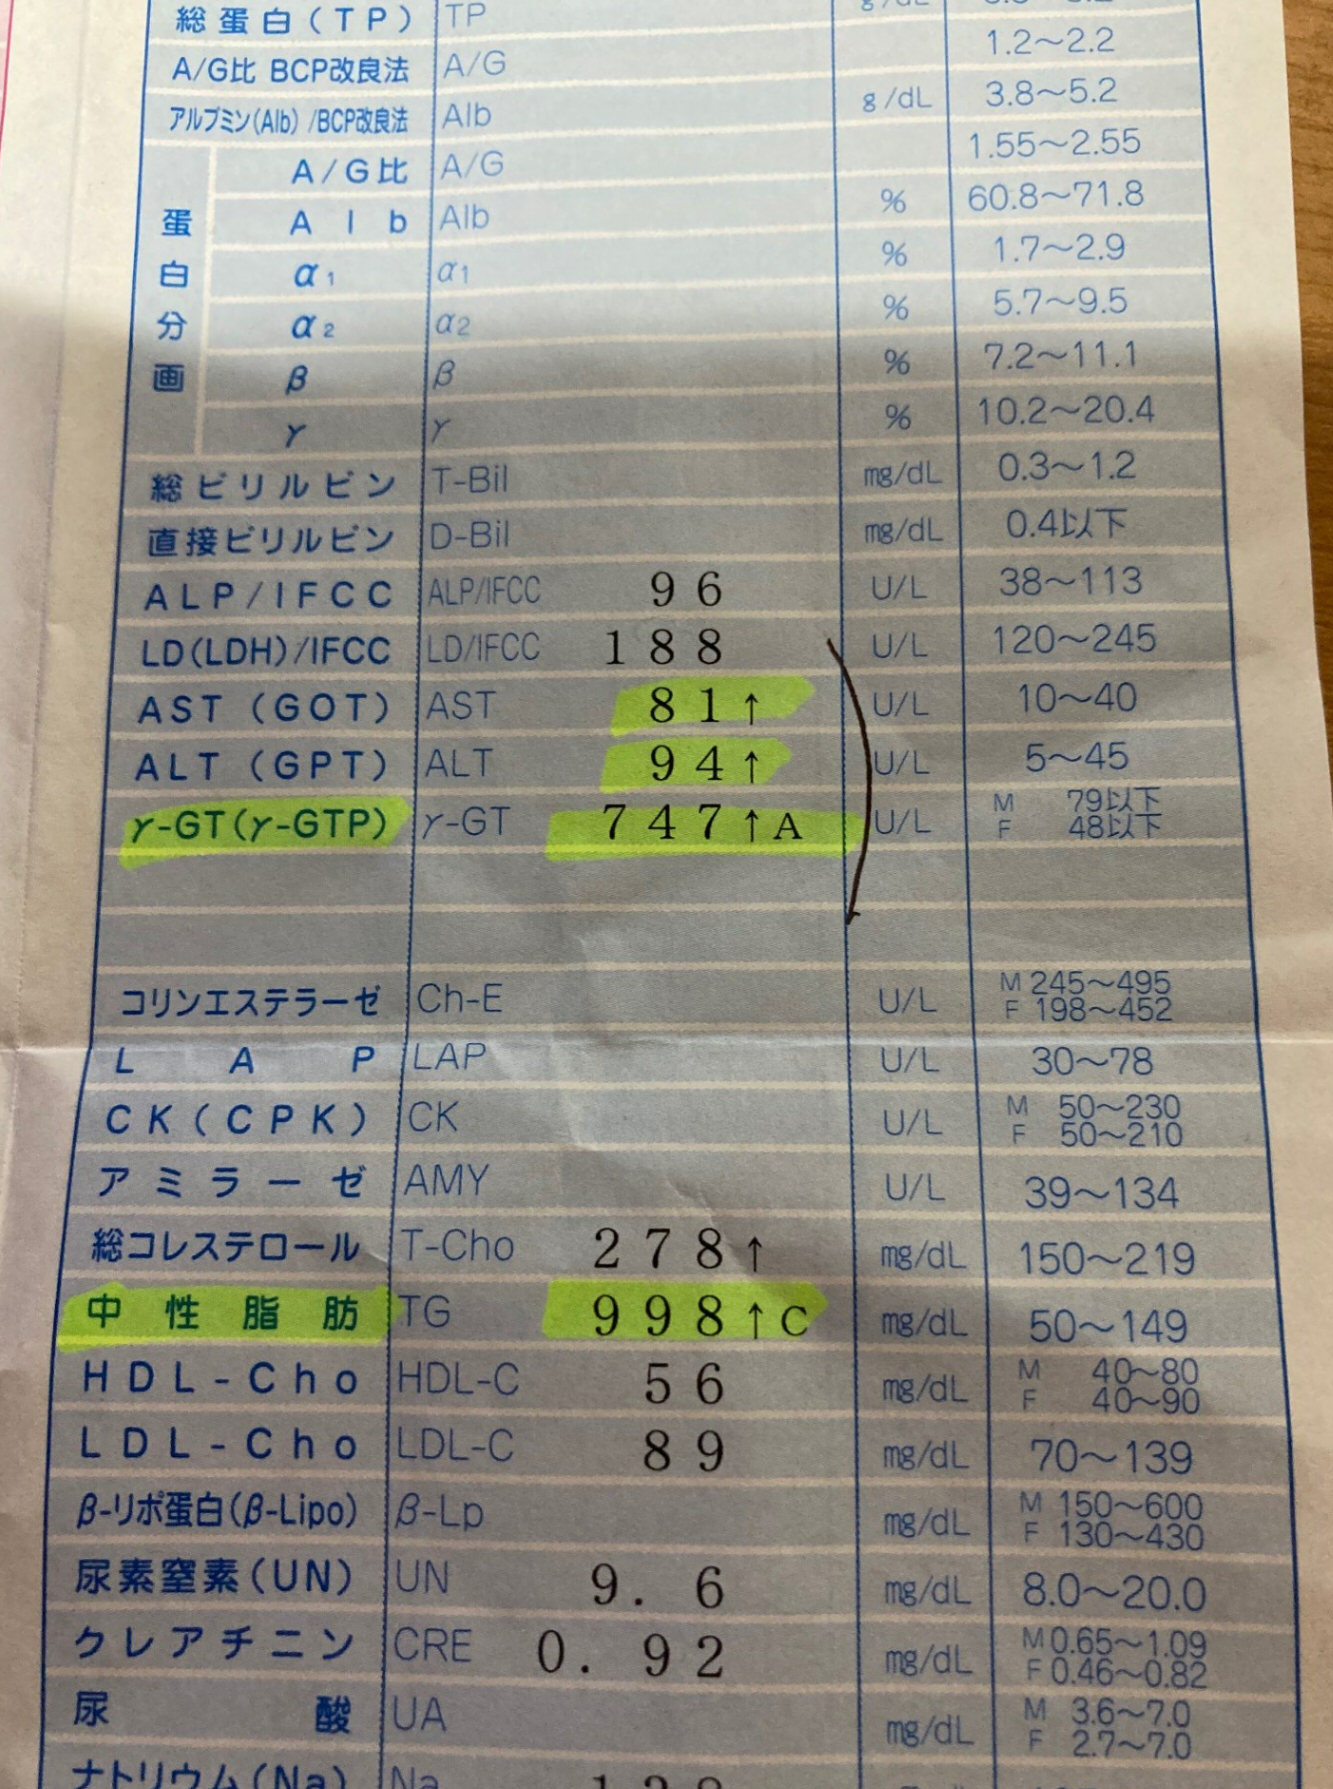 総蛋白(TP) TP g/dL
A/G比 BCP改良法 A/G 1.2～2.2
アルブミン(Alb)/BCP改良法 Alb g/dL 3.8～5.2
蛋白分画
A/G比 A/G 1.55～2.55
Alb Alb % 60.8～71.8
α1 α1 % 1.7～2.9
α2 α2 % 5.7～9.5
β β % 7.2～11.1
γ γ % 10.2～20.4
総ビリルビン T-Bil mg/dL 0.3～1.2
直接ビリルビン D-Bil mg/dL 0.4以下
ALP/IFCC ALP/IFCC 96 U/L 38～113
LD(LDH)/IFCC LD/IFCC 188 U/L 120～245
AST(GOT) AST 81↑ U/L 10～40
ALT(GPT) ALT 94↑ U/L 5～45
γ-GT(γ-GTP) γ-GT 747↑A U/L M 79以下
F 48以下
コリンエステラーゼ Ch-E U/L M 245～495
F 198～452
LAP LAP U/L 30～78
CK(CPK) CK U/L M 50～230
F 50～210
アミラーゼ AMY U/L 39～134
総コレステロール T-Cho 278↑ mg/dL 150～219
中性脂肪 TG 998↑C mg/dL 50～149
HDL-Cho HDL-C 56 mg/dL M 40～80
F 40～90
LDL-Cho LDL-C 89 mg/dL 70～139
β-リポ蛋白(β-Lipo) β-Lp mg/dL M 150～600
F 130～430
尿素窒素(UN) UN 9.6 mg/dL 8.0～20.0
クレアチニン CRE 0.92 mg/dL M 0.65～1.09
F 0.46～0.82
尿酸 UA mg/dL M 3.6～7.0
F 2.7～7.0
ナトリウム(Na) Na